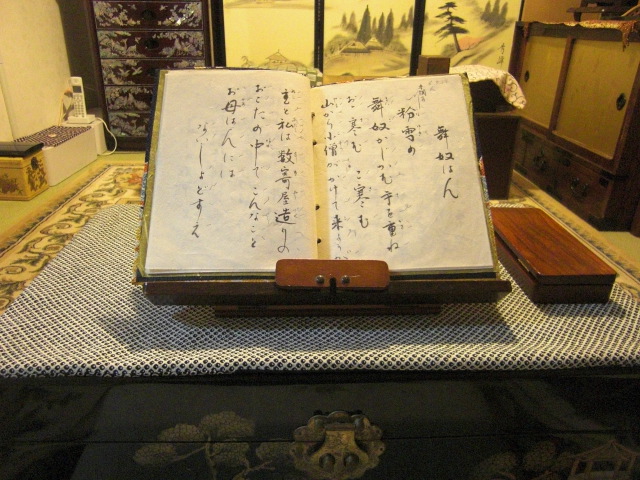 舞奴はん
粉雪の
舞奴がじゃれて手を重ね
お、寒む こ寒む
山から小僧がかけて来る
主と私は数寄屋造りの
おこたの中でこんなこと
お母はんには
ないしょどすえ